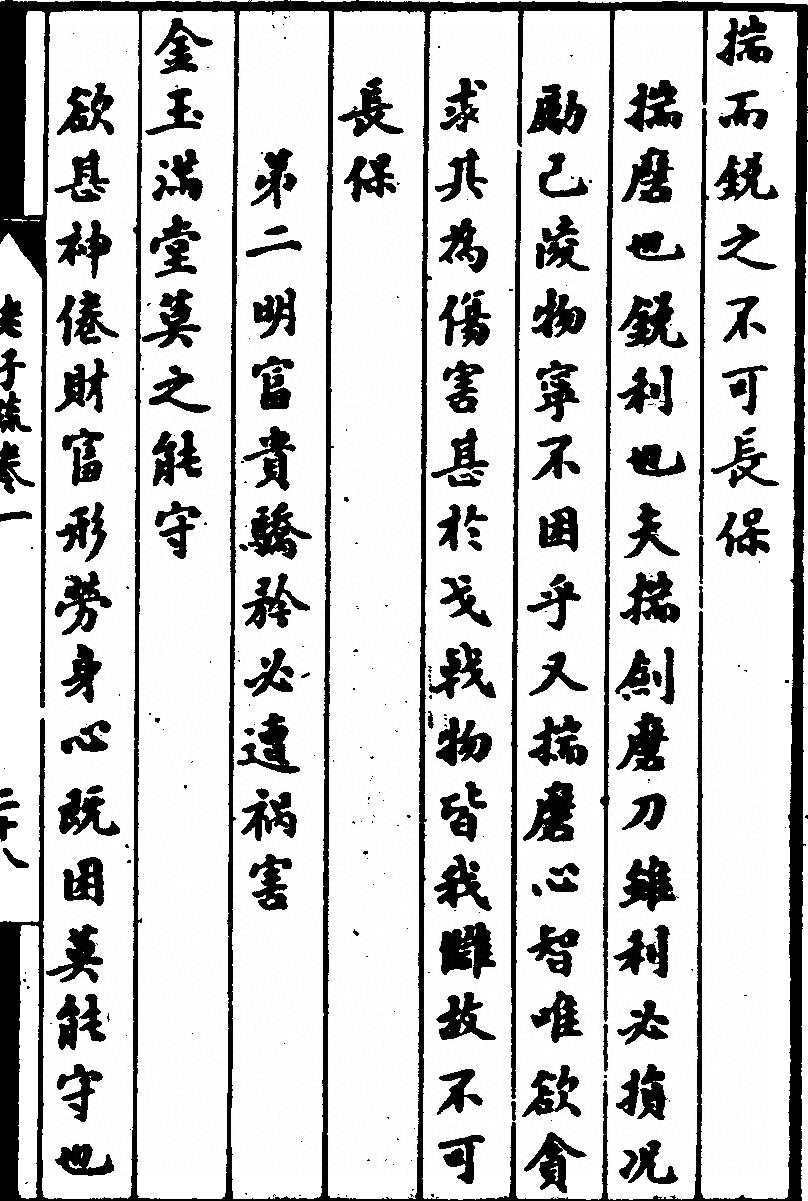 揣而銳之不可長保
揣磨也銳利也夫揣劍磨刀雖利必損况
勵己淩物寧不困乎又揣磨心智唯欲貪
求其為傷害甚於戈戟物皆我讎故不可
長保
第二明富貴驕矜必遭禍害
金玉滿堂莫之能守
欲甚神倦財富形勞身心既困莫能守也
老子疏卷一
二十八